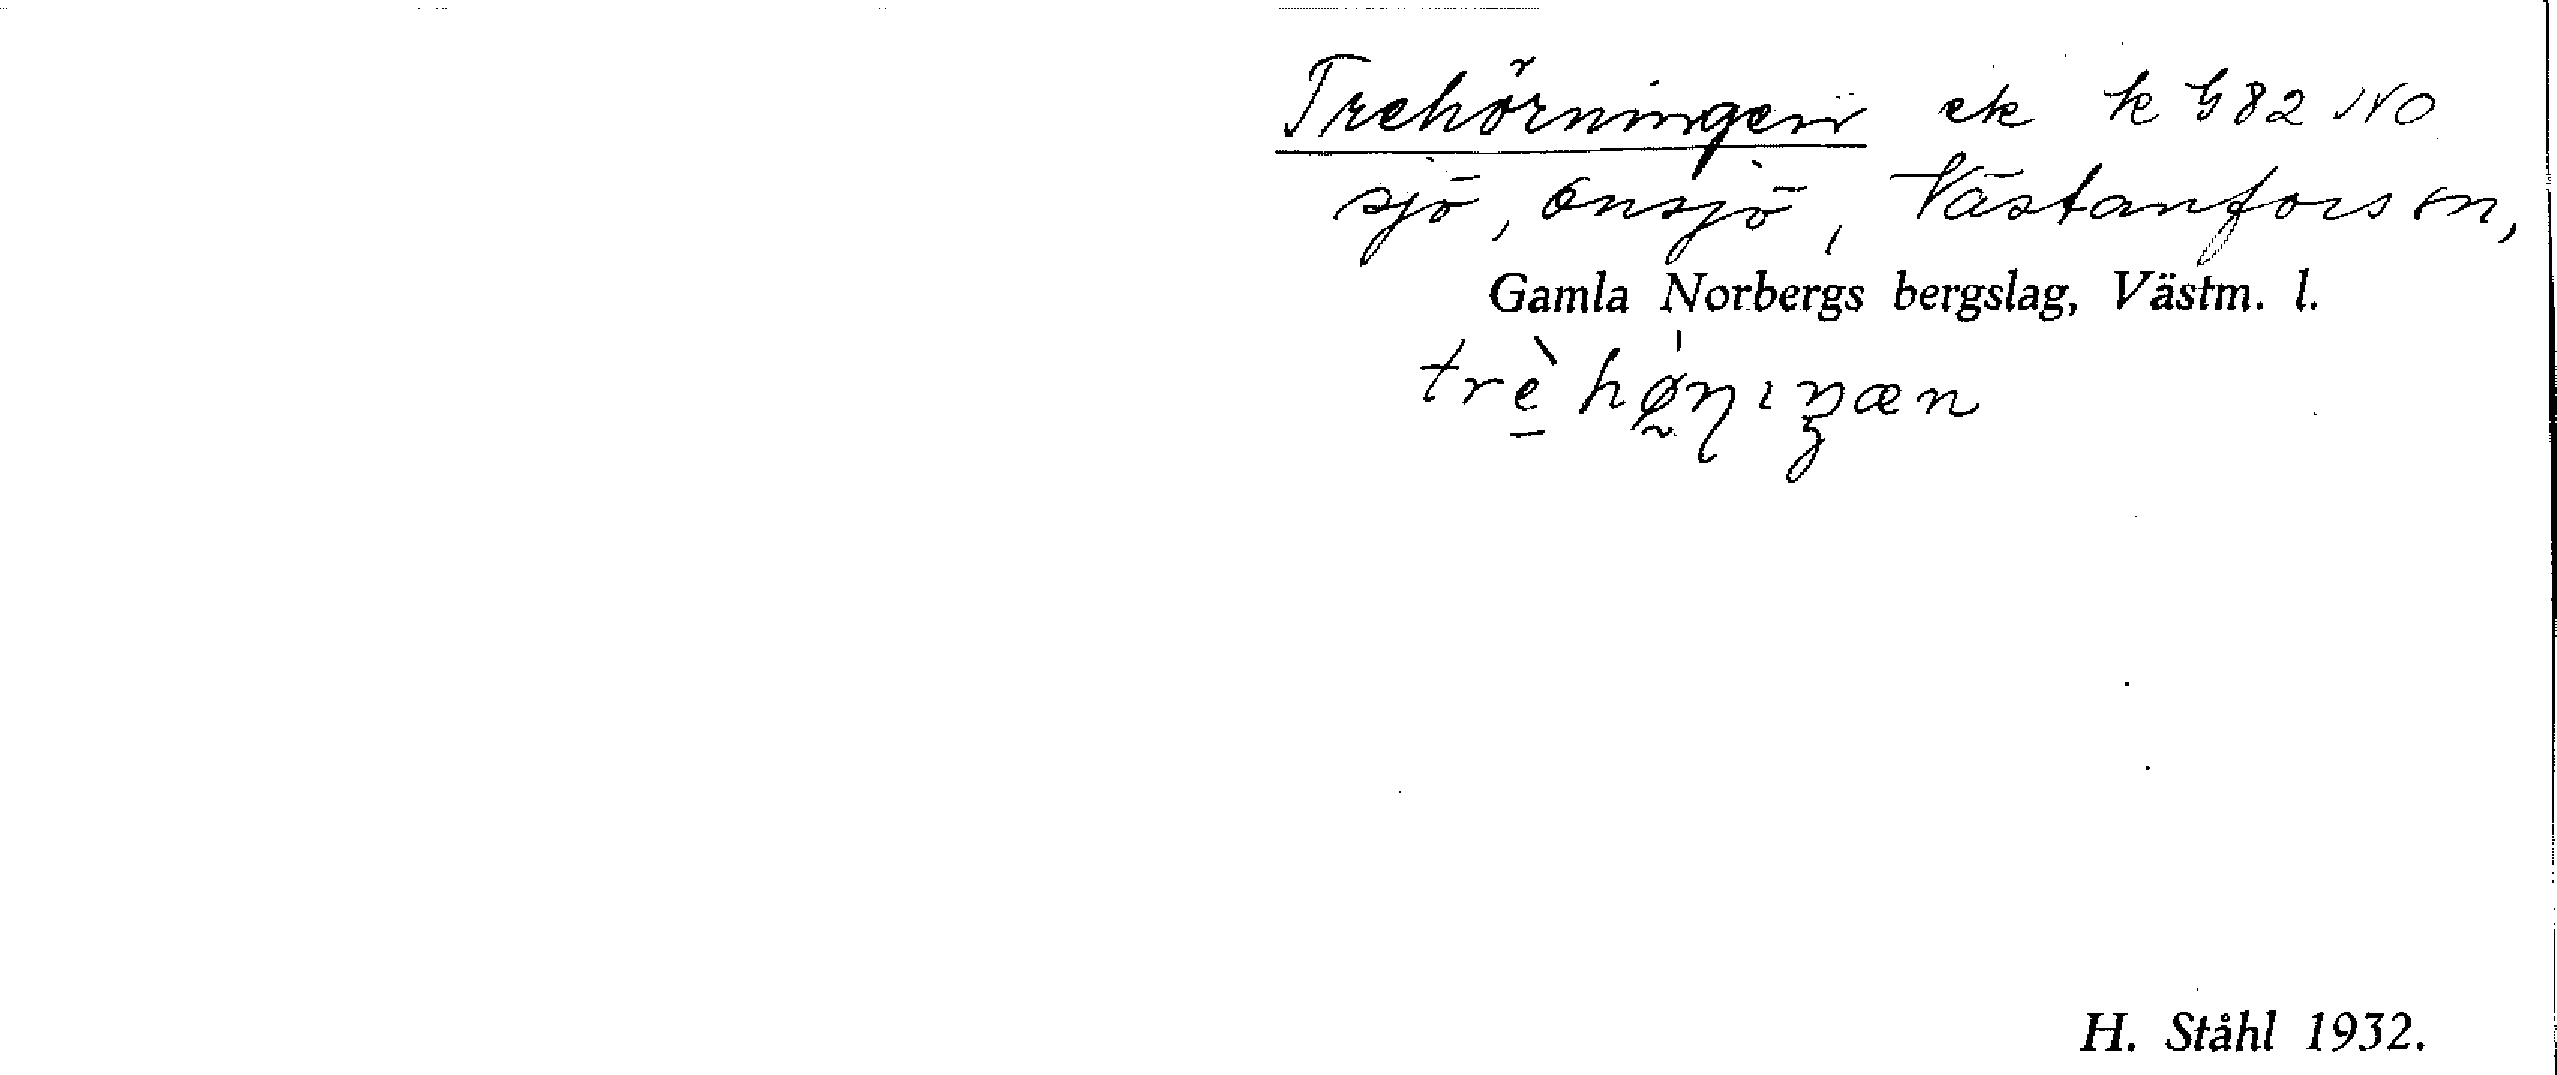 Trehörningen ek k G82 NO
sjö, Onsjö, Västanfors sn,
Gamla Norbergs bergslag, Västm. l.
trè̱ hø̰̍ɳıŋæn
H. Ståhl 1932.